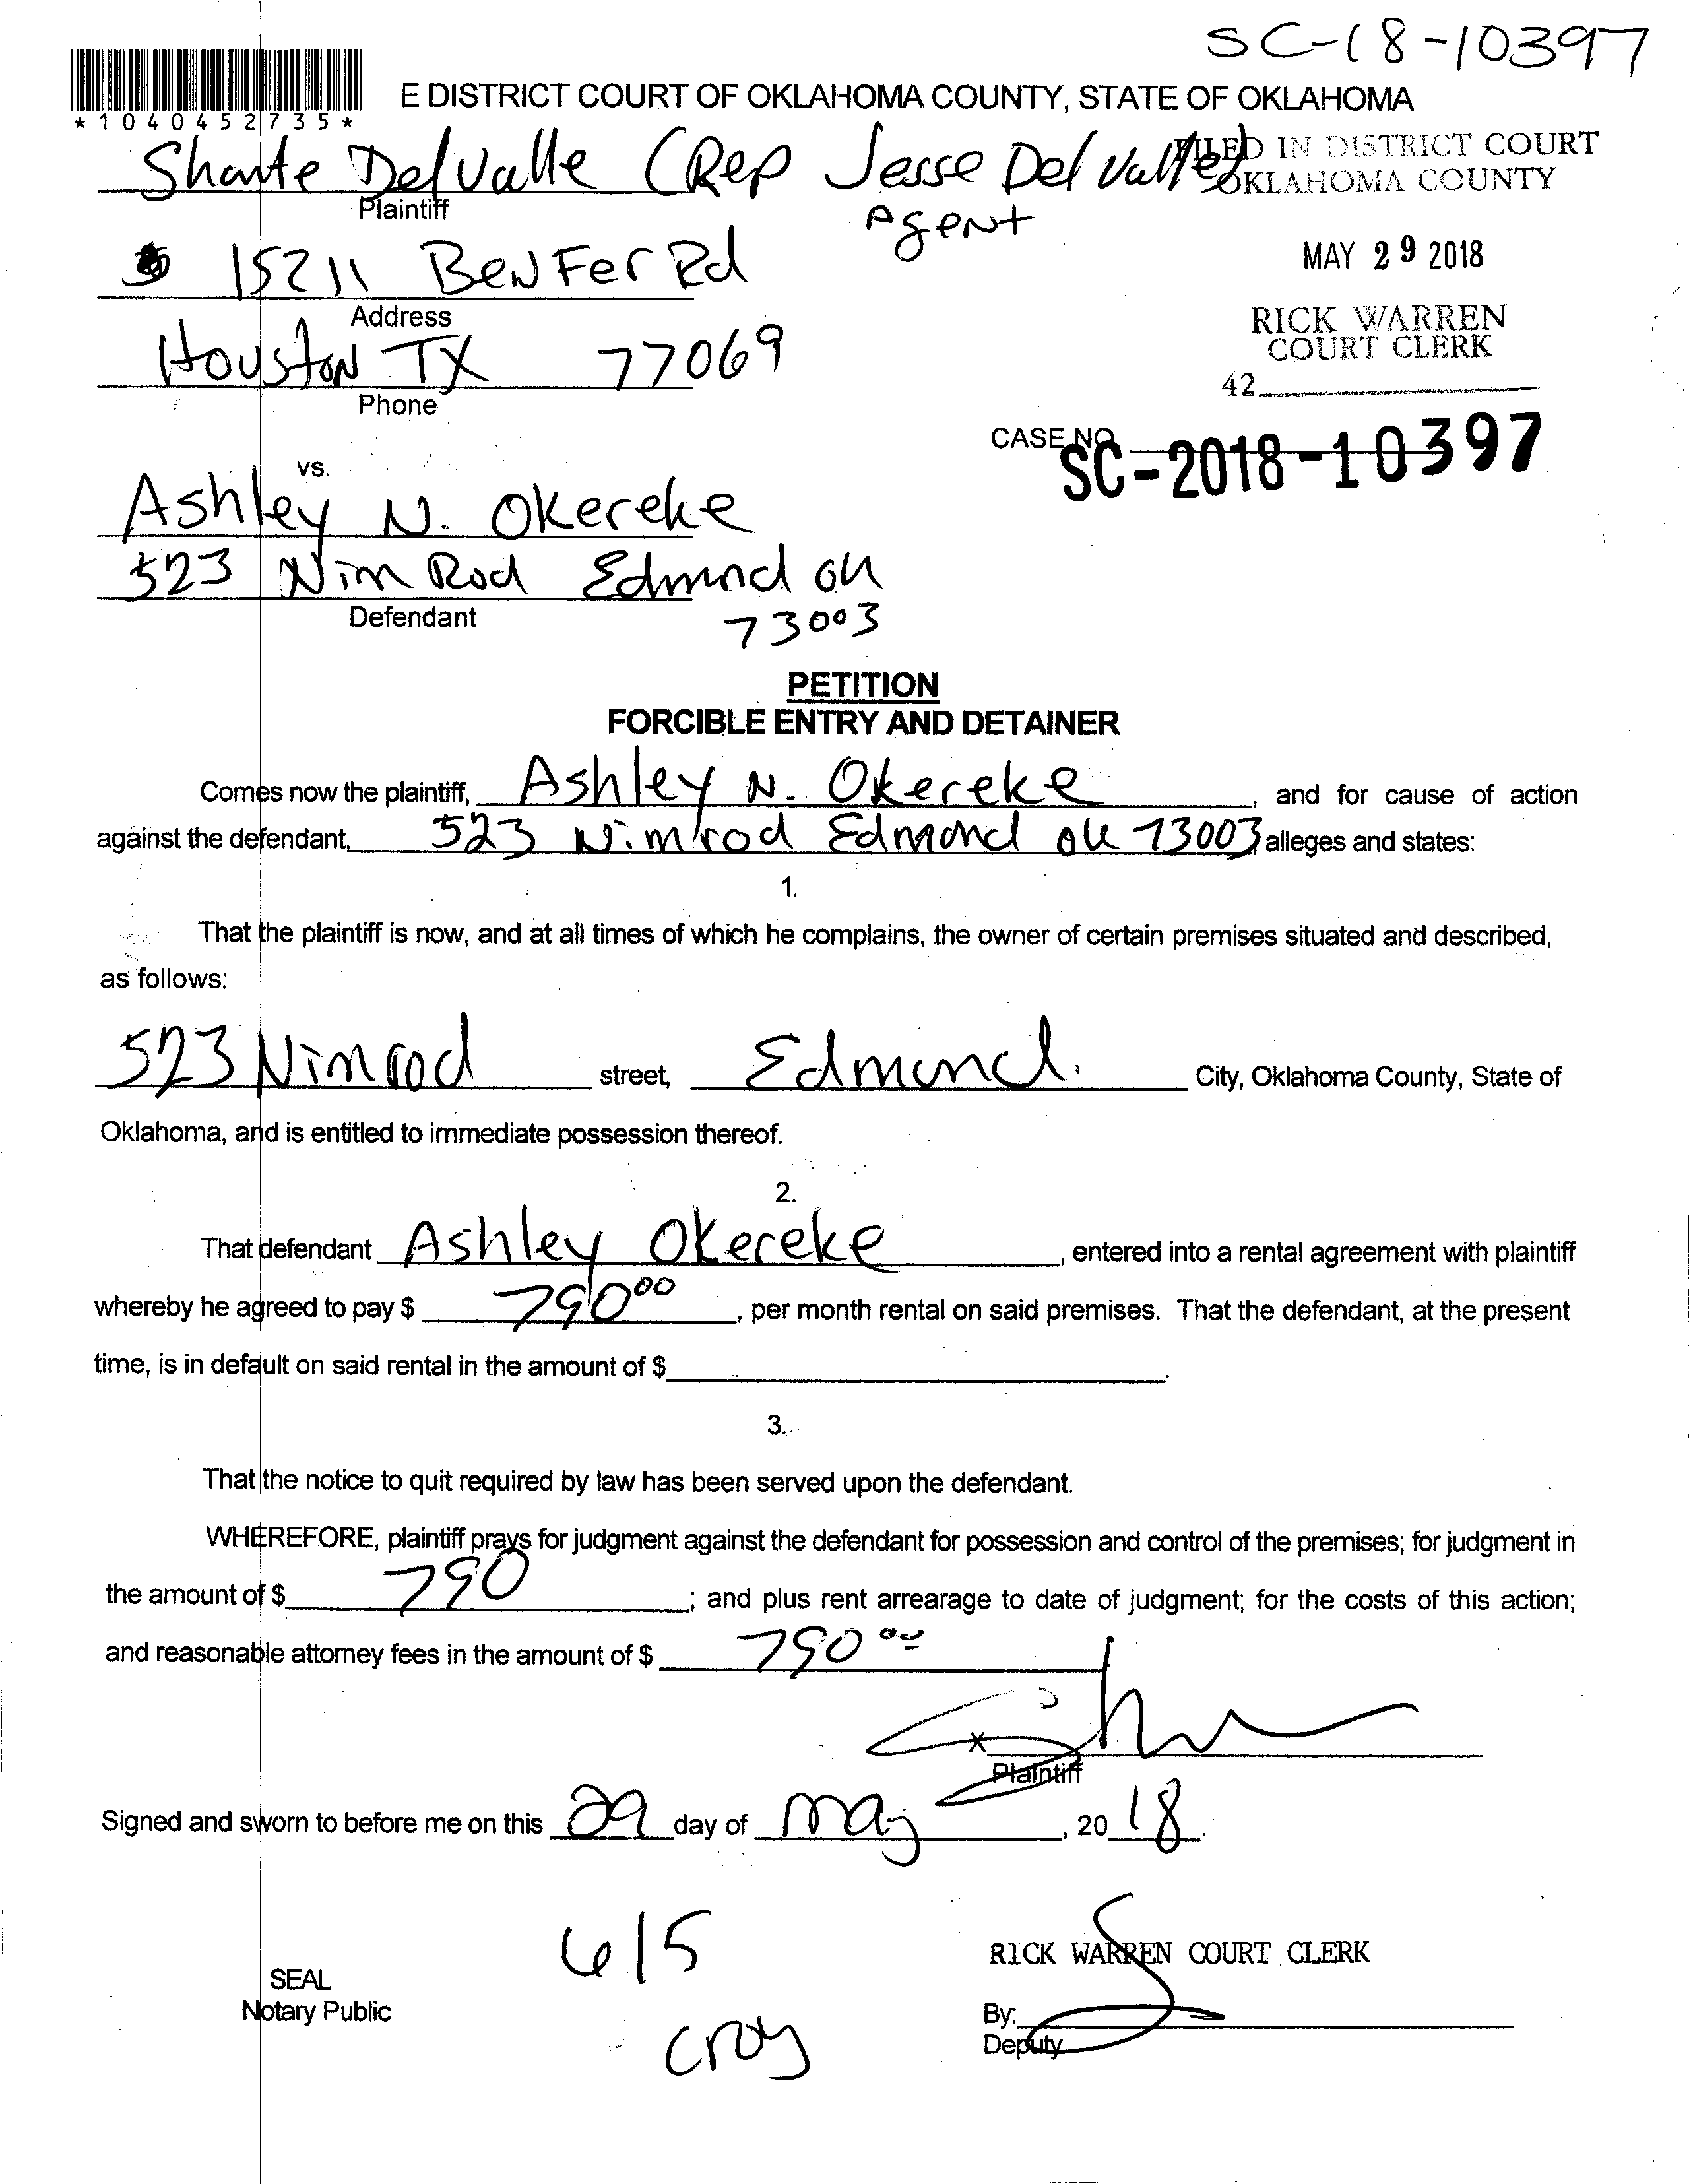 SC-18-10397
E DISTRICT COURT OF OKLAHOMA COUNTY, STATE OF OKLAHOMA
*1040452735*
Shante DelValle (Rep Jesse Del Valle)
FILED IN DISTRICT COURT
OKLAHOMA COUNTY
Plaintiff
Agent
15211 BenFer Rd
MAY 29 2018
Address
RICK WARREN
COURT CLERK
Houston TX 77069
42
Phone
CASE NO.
SC-2018-10397
vs.
Ashley N. Okereke
523 Nim Rod Edmond OK
73003
Defendant
PETITION
FORCIBLE ENTRY AND DETAINER
Comes now the plaintiff, Ashley N. Okereke, and for cause of action
against the defendant, 523 Nimrod Edmond OK 73003 alleges and states:
1.
That the plaintiff is now, and at all times of which he complains, the owner of certain premises situated and described,
as follows:
523 Nimrod street, Edmond City, Oklahoma County, State of
Oklahoma, and is entitled to immediate possession thereof.
2.
That defendant Ashley Okereke, entered into a rental agreement with plaintiff
whereby he agreed to pay $ 790.00, per month rental on said premises. That the defendant, at the present
time, is in default on said rental in the amount of $.
3.
That the notice to quit required by law has been served upon the defendant.
WHEREFORE, plaintiff prays for judgment against the defendant for possession and control of the premises; for judgment in
the amount of $ 790; and plus rent arrearage to date of judgment; for the costs of this action;
and reasonable attorney fees in the amount of $ 790.00
X
Plaintiff
Signed and sworn to before me on this 29 day of May, 2018.
6/5
RICK WARREN COURT CLERK
SEAL
Notary Public
By:
Deputy
Croy